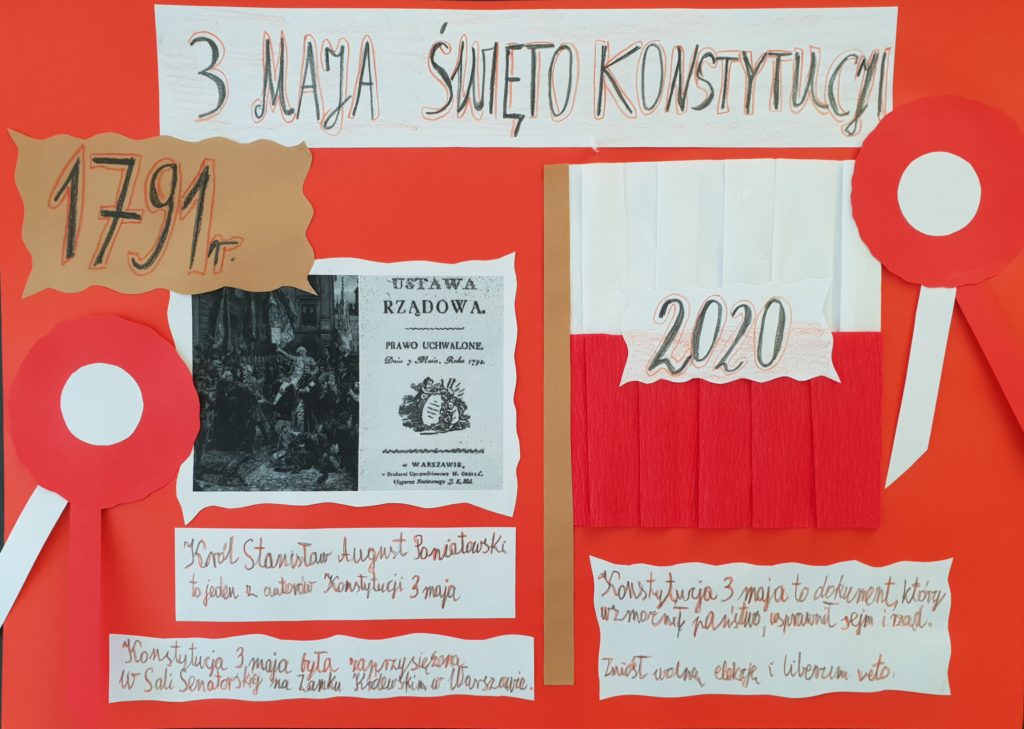 3 MAJA ŚWIĘTO KONSTYTUCJI
1791 r.
USTAWA
RZĄDOWA.
PRAWO UCHWALONE.
Dnia 3. Maia, Roku 1791.
w WARSZAWIE,
2020
Król Stanisław August Poniatowski
to jeden z autorów Konstytucji 3 maja
Konstytucja 3 maja była zaprzysiężona
w Sali Senatorskiej na Zamku Królewskim w Warszawie.
Konstytucja 3 maja to dokument, który
wzmocnił państwo, usprawnił sejm i rząd.
Zniósł wolną elekcję i liberum veto.